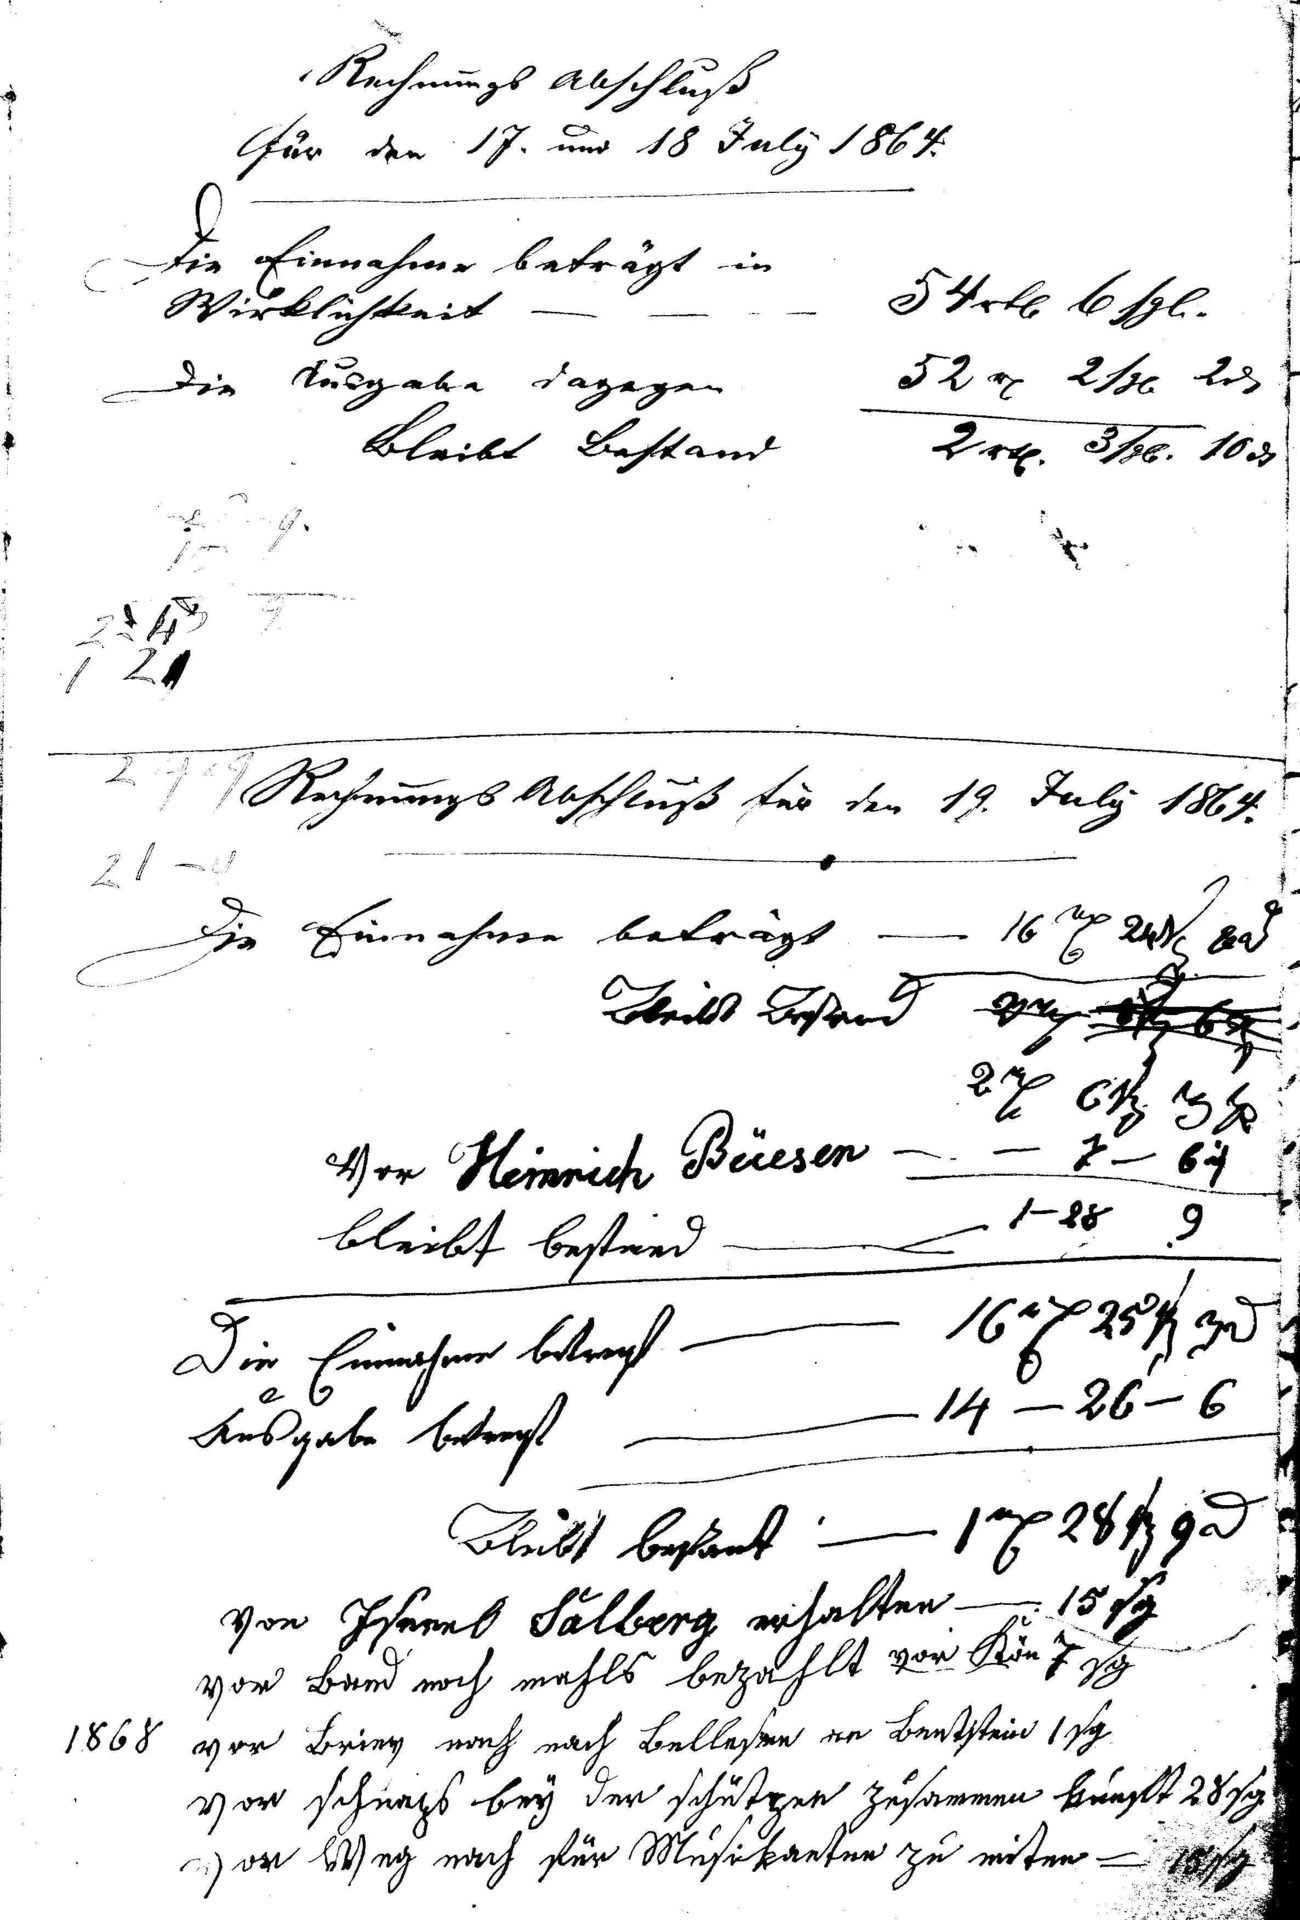 Rechnungs Abschluß
für den 17. und 18 July 1864.
Die Einnahme beträgt in
Wirklichkeit — — — 54 rtl. 6 sgl.
Die Ausgabe dagegen 52 rt 2 sgl 2 d
Bleibt Bestand 2 rtl. 3 sgl. 10 d
9.
9
1 2
Rechnungs Abschluß für den 19. July 1864.
21 -
Die Einnahme beträgt — 16 rt 24 sg 8 d
Bleibt Bestand
2 rt 6 sg 3 d
Vor Heinrich Büesen — — 7 — 6
bleibt bestand — 1 - 28 9
Die Einnahme betregt — 16 rt 25 sg 3 d
Ausgabe betregt — 14 — 26 — 6
Bleibt bestant — 1 rt 28 sg 9 d
von Isreel Salberg erhalten — 15 sg
vor Band noch mahls bezahlt vor Kön 7 sg
1868 vor Briev nach nach Bellersen 1 sg
vor schnaps bey der schützen zusammen kunft 28 sg
vor Weg nach für Musikanten zu miten — 15 sg